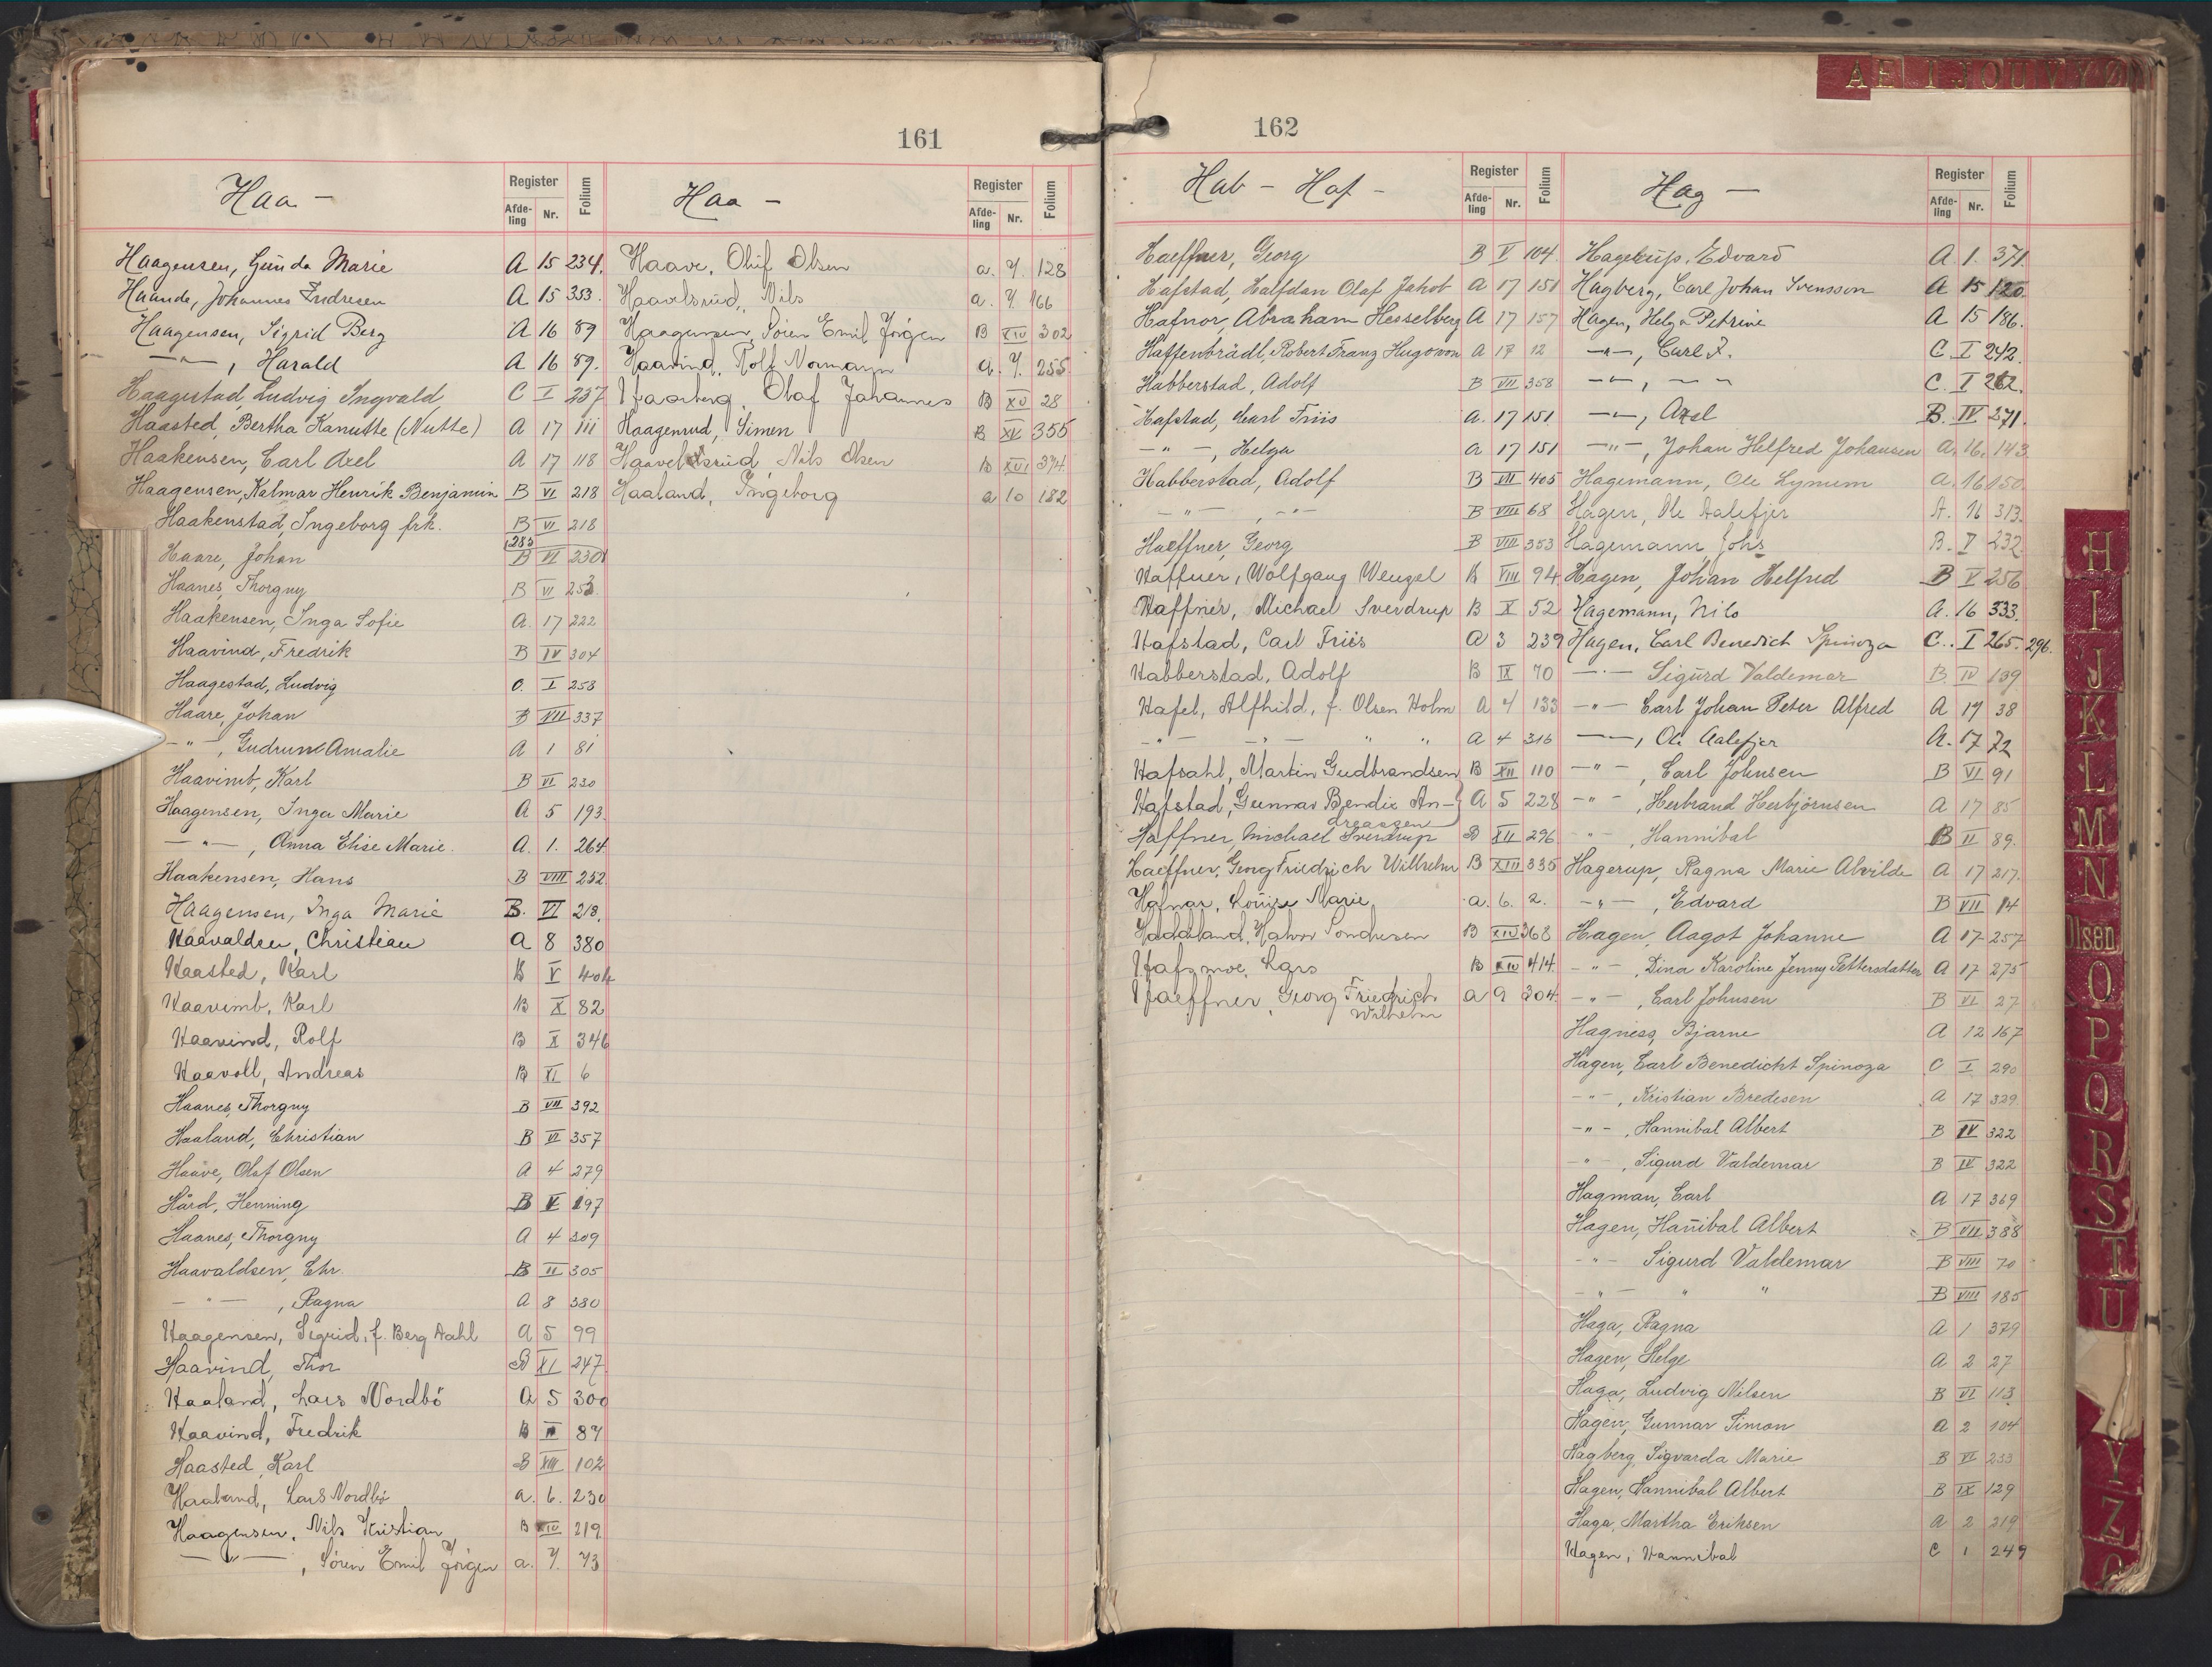 161
Haa -
Register
Afde-
ling
Nr.
Folium
Haagensen, Gunda Marie A 15 234.
Haande, Johannes Indresen A 15 353.
Haagensen, Sigrid Berg A 16 89
—"—, Harald A 16 89.
Haagestad, Ludvig Ingvald C I 237
Haasted, Bertha Kanutte (Nutte) A 17 111
Haakensen, Carl Axel A 17 118
Haagensen, Kalmar Henrik Benjamin B VI 218
Haakenstad, Ingeborg frk. B VI 218
283
Haare, Johan B VI 230
Haanes, Thorgny B VI 253
Haakensen, Inga Sofie A. 17 222
Haavind, Fredrik B IV 304
Haagestad, Ludvig C. I 258
Haare, Johan B VII 337
—"—, Gudrun Amalie A 1 81
Haavimb, Karl B VI 230
Haagensen, Inga Marie A 5 193.
—"—, Anna Elise Marie. A. 1. 264
Haakensen, Hans B VIII 252
Haagensen, Inga Marie B. VI 218.
Haavaldsen, Christian A 8 380
Haasted, Karl B V 404
Haavimb, Karl B X 82
Haavind, Rolf B X 346
Haavoll, Andreas B XI 6
Haanes, Thorgny B VII 392
Haaland, Christian B VI 357
Haave, Olaf Olsen A 4 279
Hård, Henning B V 197
Haanes, Thorgny A 4 309
Haavaldsen, Chr. B II 305
—"—, Ragna A 8 380
Haagensen, Sigrid, f. Berg Dahl A 5 99
Haavind, Thor B XI 247
Haaland, Lars Nordbö A 5 300
Haavind, Fredrik B II 87
Haasted, Karl B XIII 102
Haaland, Lars Nordbö a. 6. 230
Haagensen, Nils Kristian B XIV 219
—"—, Sören Emil Jörgen a. 7. 73
Haa -
Register
Afde-
ling
Nr.
Folium
Haave, Oluf Olsen a. 7. 128
Haavelsrud, Nils a. 7. 166
Haagensen, Sören Emil Jörgen B XIV 302
Haavind, Rolf Normann a. 7. 255
Haarberg, Olaf Johannes B XV 28
Haagenrud, Simen B XV 355
Haavelsrud Nils Olsen B XVI 374
Haaland, Ingeborg a 10 182
162
Hab - Haf -
Register
Afde-
ling
Nr.
Folium
Haeffner, Georg B V 104.
Hafstad, Halfdan Olaf Jakob A 17 151
Hafnor, Abraham Hesselberg A 17 157
Haffenbrädl, Robert Franz Hugo von A 17 12
Habberstad, Adolf B VII 358
Hafstad, Carl Friis a. 17 151.
—"—, Helga a 17 151
Habberstad, Adolf B VII 405
—"—, —"— B VIII 68
Haeffner, Georg B VIII 353
Haffner, Wolfgang Wenzel B VIII 94
Haffner, Michael Sverdrup B X 52
Hafstad, Carl Friis A 3 239
Habberstad, Adolf B IX 70
Hafel, Alfhild, f. Olsen Holm A 4 133
—"— —"— " " A 4 316
Hafsahl, Martin Gudbrandsen B XII 110
Hafstad, Gunnar Bendix An- A 5 228
dreassen
Haffner, Michael Sverdrup B XII 296
Haeffner, Georg Friedrich Wilhelm B XIII 335
Hafnor, Louise Marie a. 6. 2.
Haddeland, Halvor Sondresen B XIV 368
Hafsmoe, Lars B XIV 414
Haeffner, Georg Friedrich a 9 304
Wilhelm
Hag -
Register
Afde-
ling
Nr.
Folium
Hagerup, Edvard A. 1. 371.
Hagberg, Carl Johan Svensson A 15 120
Hagen, Helga Petrine A 15 186.
—"—, Carl F. C. I 242.
—"—, —"— C. I 262.
—"—, Axel B. IV 271.
—"—, Johan Helfred Johansen A. 16. 143
Hagemann, Ole Lynum A. 16 150
Hagen, Ole Aalefjer A. 16 313.
Hagemann, Johs B. V 232
Hagen, Johan Helfred B V 256
Hagemann, Nils A. 16 333.
Hagen, Carl Benedich Spinoza C. I 265. 296.
—"— Sigurd Valdemar B. IV 139
—"— Carl Johan Peter Alfred A 17 38
—"—, Ole Aalefjer A. 17 72
—"—, Carl Johnsen B VI 91
—"—, Herbrand Herbjörnsen A 17 85
—"—, Hannibal B II 89.
Hagerup, Ragna Marie Alvilde A 17 217.
—"—, Edvard B VII 14
Hagen, Aagot Johanne A 17 257
—"—, Dina Karoline Jenny Pettersdatter A 17 275
—"—, Carl Johnsen B VI 27
Hagness, Bjarne A 12 167
Hagen, Carl Benedicht Spinoza C I 290
—"—, Kristian Bredesen A 17 329
—"—, Hannibal Albert B IV 322
—"—, Sigurd Valdemar B IV 322
Hagman, Carl A 17 369
Hagen, Hanibal Albert B VII 388
—"— Sigurd Valdemar B VIII 70
—"— " " B VIII 185
Haga, Ragna A 1 379
Hagen, Helge A 2 27
Haga, Ludvig Nilsen B VI 113
Hagen, Gunnar Simon A 2 104
Hagberg, Sigvarda Marie B VI 233
Hagen, Hannibal Albert B IX 129
Haga, Martha Eriksen A 2 219
Hagen, Hannibal C 1 249
AE I J O U V Y Ø
H
I
J
K
L
M
N
Olsen
O
P
Q
R
S
T
U
Y
Z